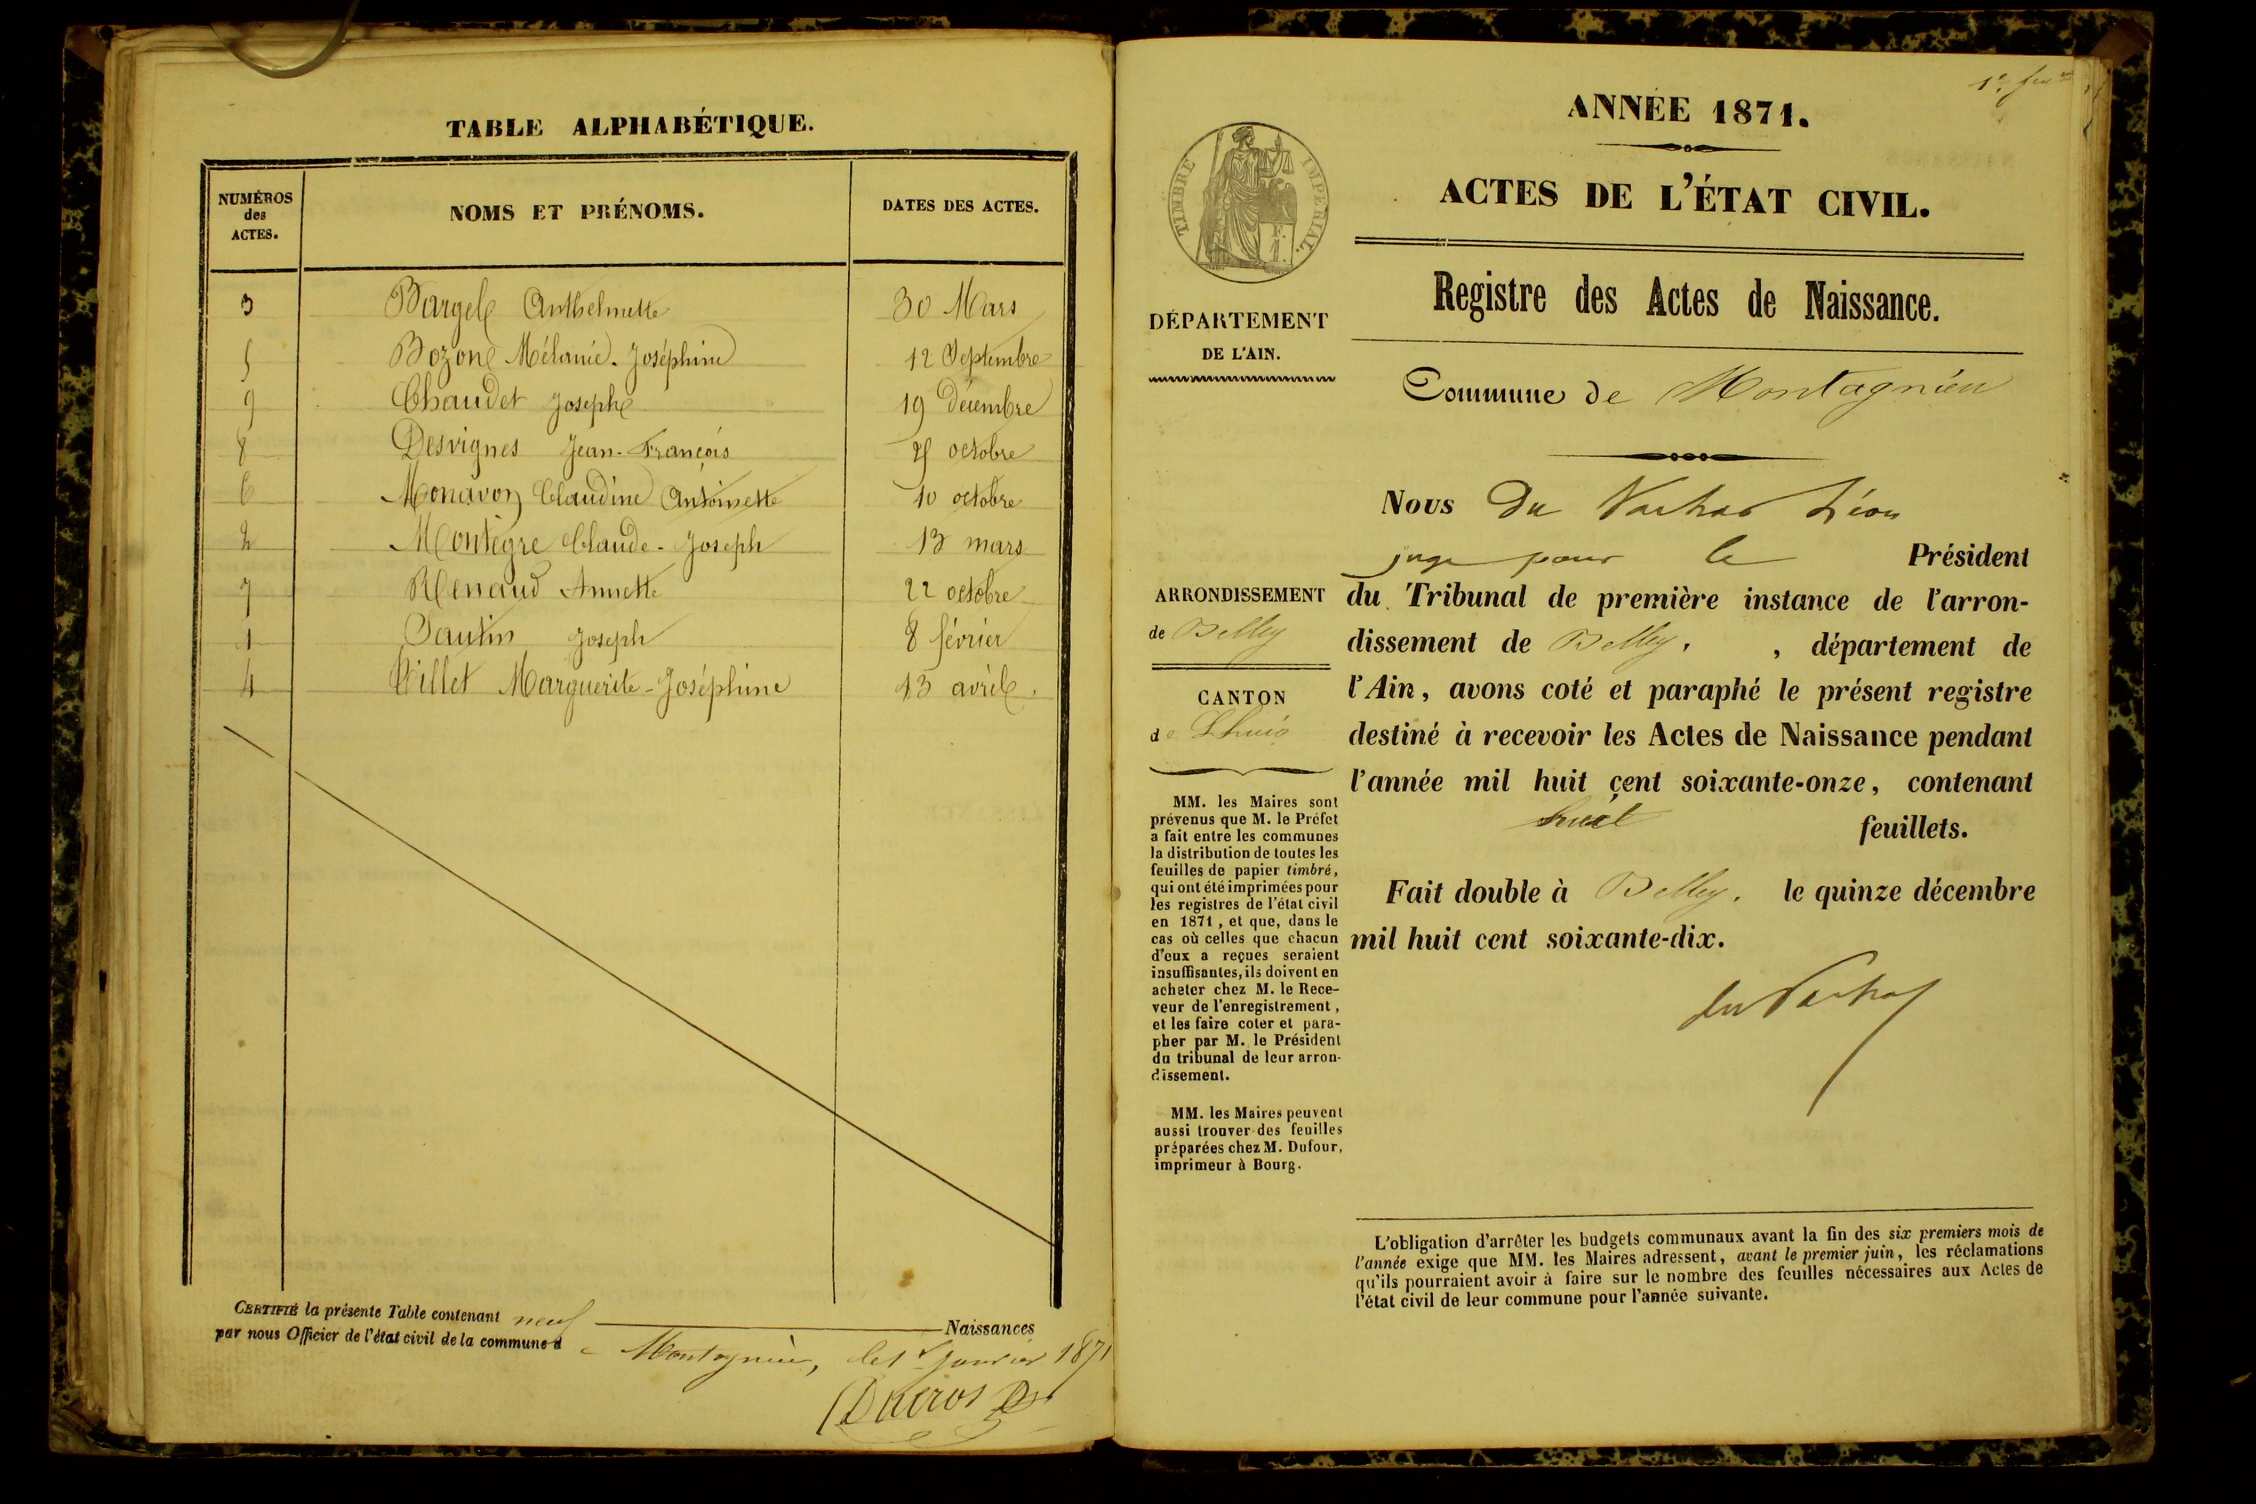 TABLE ALPHABÉTIQUE.
NUMÉROS
des
ACTES.
NOMS ET PRÉNOMS.
DATES DES ACTES.
3 Bargel Anthelmette 30 Mars
5 Bozon Mélanie-Joséphine 12 Septembre
9 Chaudet Joseph 19 décembre
8 Desvignes Jean-François 25 octobre
6 Monavon Claudine Antoinette 10 octobre
2 Montegre Claude-Joseph 13 mars
7 Renaud Annette 22 octobre
1 Sautin Joseph 8 février
4 Villet Marguerite-Joséphine 13 avril.
CERTIFIÉ la présente Table contenant neuf Naissances
par nous Officier de l'état civil de la commune de Montagnieu, le 1er janvier 1871
Ducros
1er
ANNÉE 1871.
ACTES DE L'ÉTAT CIVIL.
TIMBRE IMPÉRIAL.
Registre des Actes de Naissance.
DÉPARTEMENT
DE L'AIN.
Commune de Montagnieu
Nous Du Vachat Léon
juge pour le Président
du Tribunal de première instance de l'arron-
dissement de Belley. , département de
l'Ain, avons coté et paraphé le présent registre
destiné à recevoir les Actes de Naissance pendant
l'année mil huit cent soixante-onze, contenant
huit feuillets.
Fait double à Belley. le quinze décembre
mil huit cent soixante-dix.
du Vachat
ARRONDISSEMENT
de Belley
CANTON
de Lhuis
MM. les Maires sont
prévenus que M. le Préfet
a fait entre les communes
la distribution de toutes les
feuilles de papier timbré,
qui ont été imprimées pour
les registres de l'état civil
en 1871, et que, dans le
cas où celles que chacun
d'eux a reçues seraient
insuffisantes, ils doivent en
acheter chez M. le Rece-
veur de l'enregistrement,
et les faire coter et para-
pher par M. le Président
du tribunal de leur arron-
dissement.
MM. les Maires peuvent
aussi trouver des feuilles
préparées chez M. Dufour,
imprimeur à Bourg.
L'obligation d'arrêter les budgets communaux avant la fin des six premiers mois de
l'année exige que MM. les Maires adressent, avant le premier juin, les réclamations
qu'ils pourraient avoir à faire sur le nombre des feuilles nécessaires aux Actes de
l'état civil de leur commune pour l'année suivante.